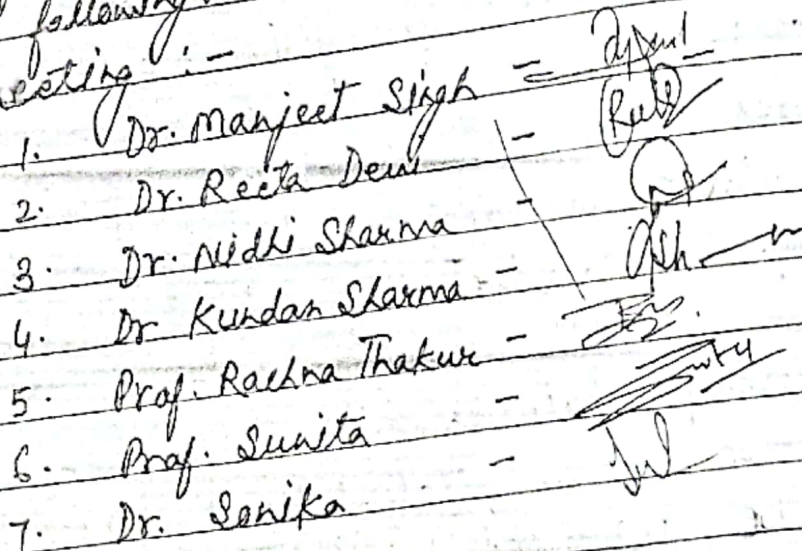 following
eeting :-
1. Dr. Manjeet Singh -
2. Dr. Reeta Devi -
3. Dr. Nidhi Sharma -
4. Dr Kundan Sharma -
5. Prof. Rachna Thakur -
6. Prof. Sunita -
7. Dr. Sonika -